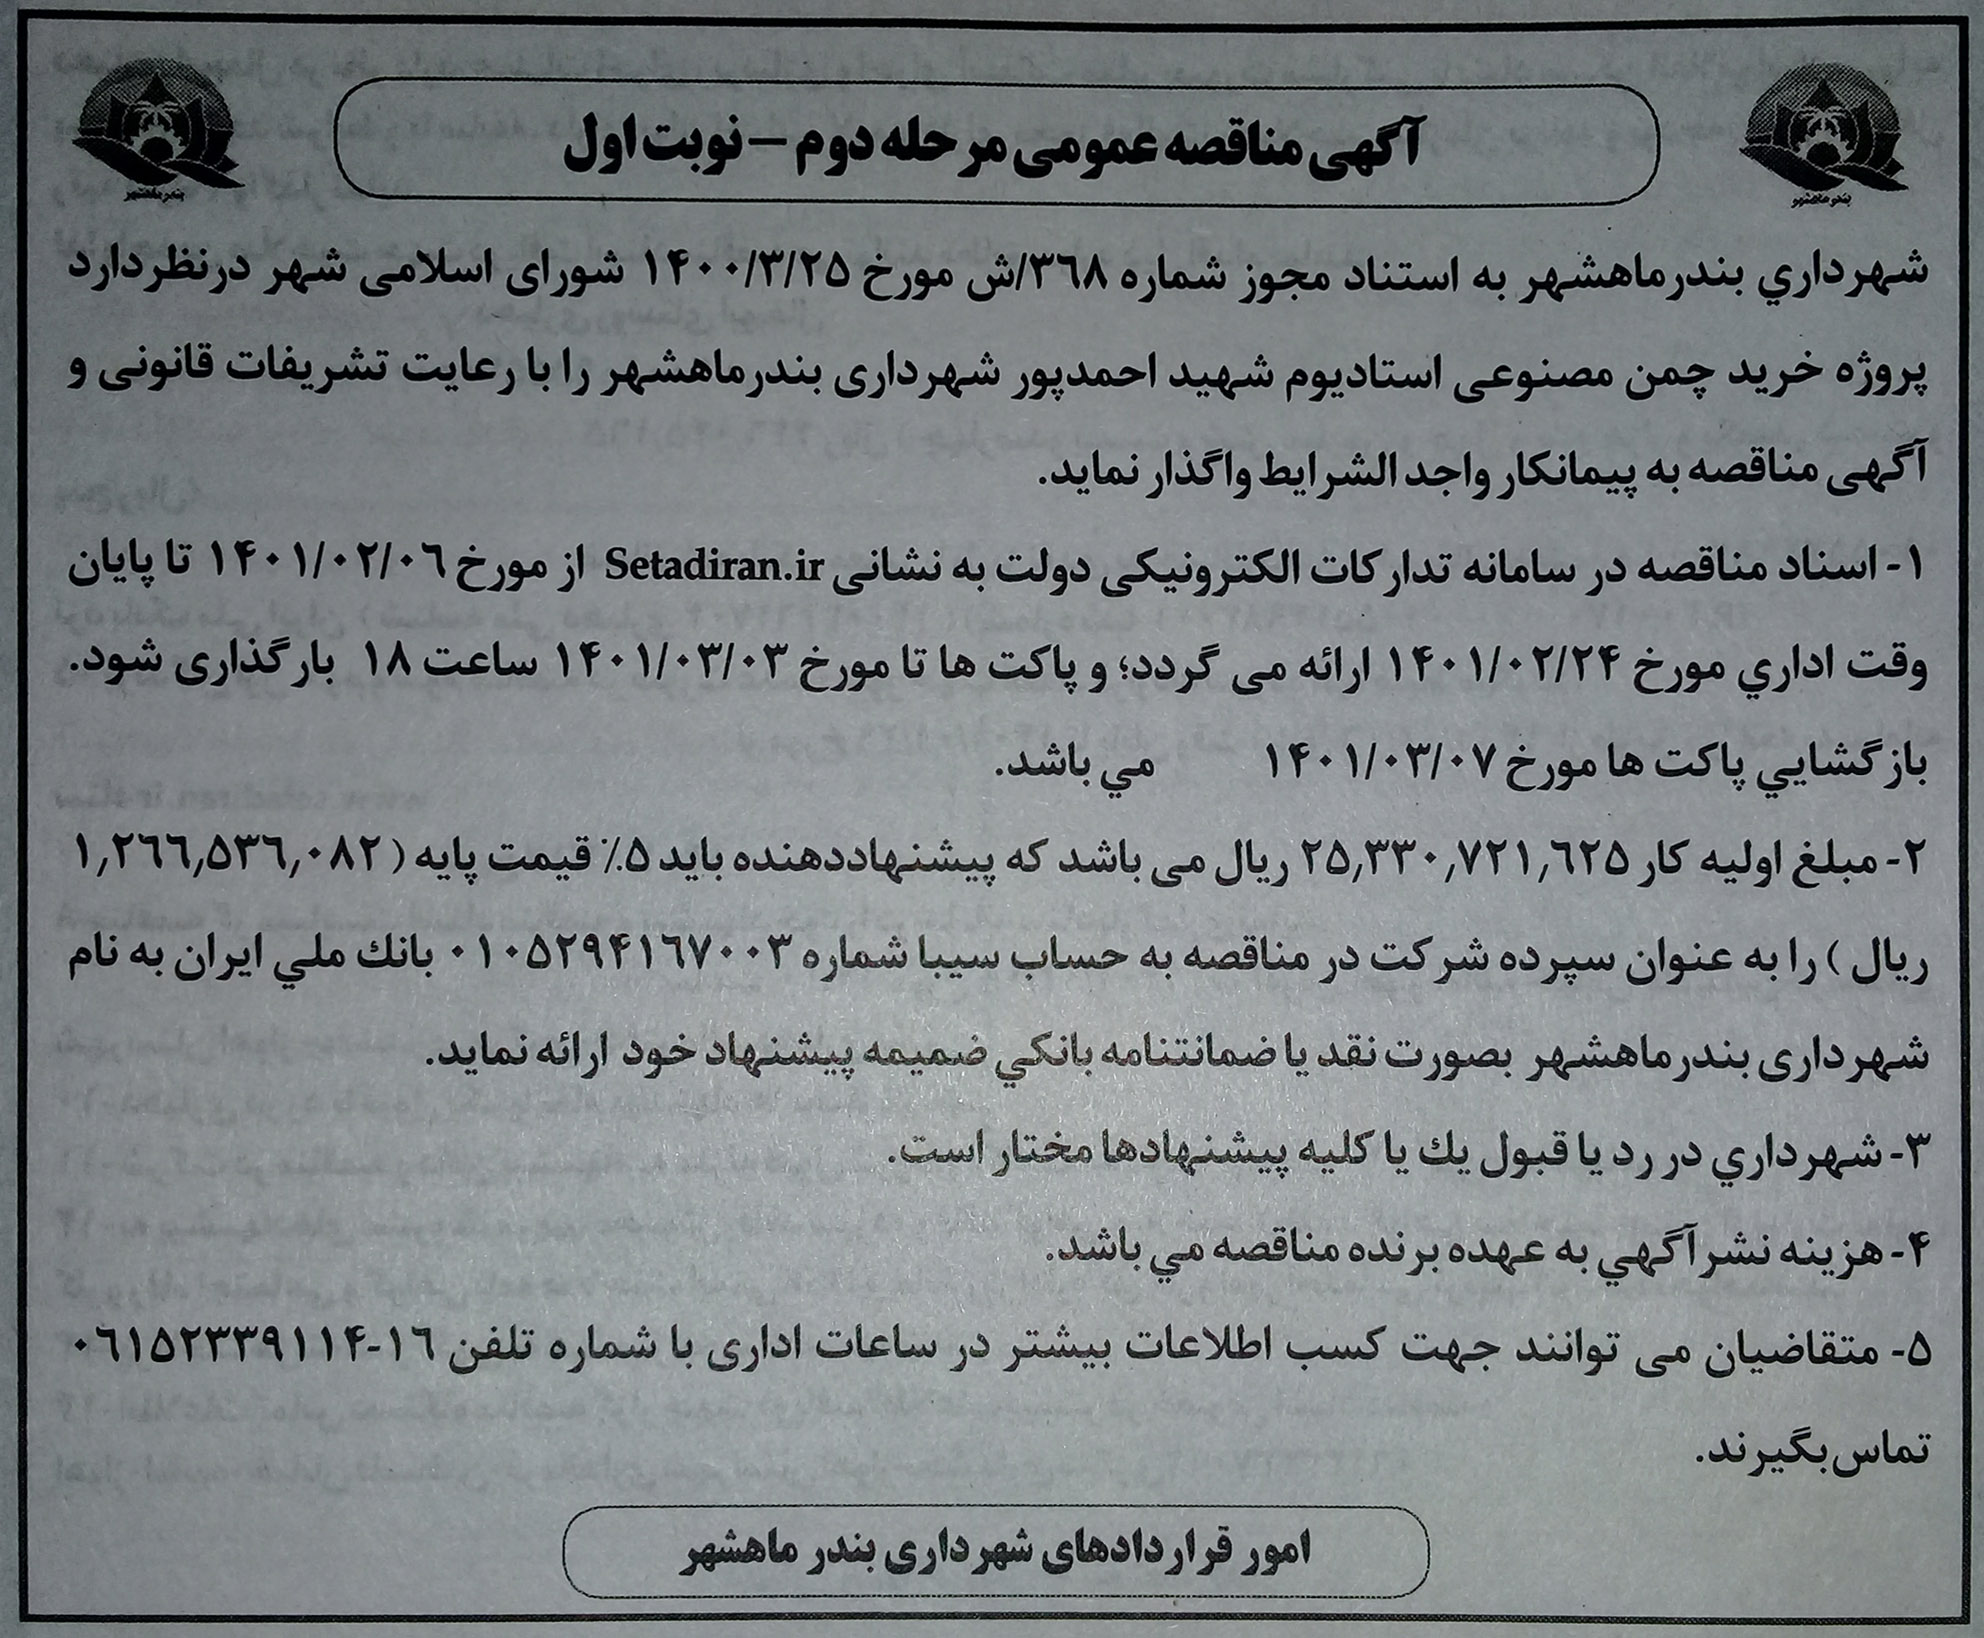 آگهی مناقصه عمومی مرحله دوم – نوبت اول
بندر ماهشهر
بندر ماهشهر
شهرداري بندرماهشهر به استناد مجوز شماره ۳٦۸/ش مورخ ۱۴۰۰/۳/۲۵ شورای اسلامی شهر درنظردارد
پروژه خرید چمن مصنوعی استادیوم شهید احمدپور شهرداری بندرماهشهر را با رعایت تشریفات قانونی و
آگهی مناقصه به پیمانکار واجد الشرایط واگذار نماید.
۱- اسناد مناقصه در سامانه تدارکات الکترونیکی دولت به نشانی Setadiran.ir از مورخ ۱۴۰۱/۰۲/۰٦ تا پایان
وقت اداري مورخ ۱۴۰۱/۰۲/۲۴ ارائه می گردد؛ و پاکت ها تا مورخ ۱۴۰۱/۰۳/۰۳ ساعت ۱۸ بارگذاری شود.
بازگشايي پاکت ها مورخ ۱۴۰۱/۰۳/۰۷ مي باشد.
۲- مبلغ اولیه کار ۲۵,۳۳۰,۷۲۱,٦۲۵ ریال می باشد که پیشنهاددهنده باید ۵٪ قیمت پایه ( ۱,۲٦٦,۵۳٦,۰۸۲
ریال ) را به عنوان سپرده شرکت در مناقصه به حساب سیبا شماره ۰۱۰۵۲۹۴۱٦۷۰۰۳ بانك ملي ایران به نام
شهرداری بندرماهشهر بصورت نقد یا ضمانتنامه بانكي ضمیمه پیشنهاد خود ارائه نماید.
۳- شهرداري در رد یا قبول يك یا کلیه پیشنهادها مختار است.
۴- هزینه نشر آگهي به عهده برنده مناقصه مي باشد.
۵- متقاضیان می توانند جهت کسب اطلاعات بیشتر در ساعات اداری با شماره تلفن ۱٦-۰٦۱۵۲۳۳۹۱۱۴
تماس بگیرند.
امور قراردادهای شهرداری بندر ماهشهر